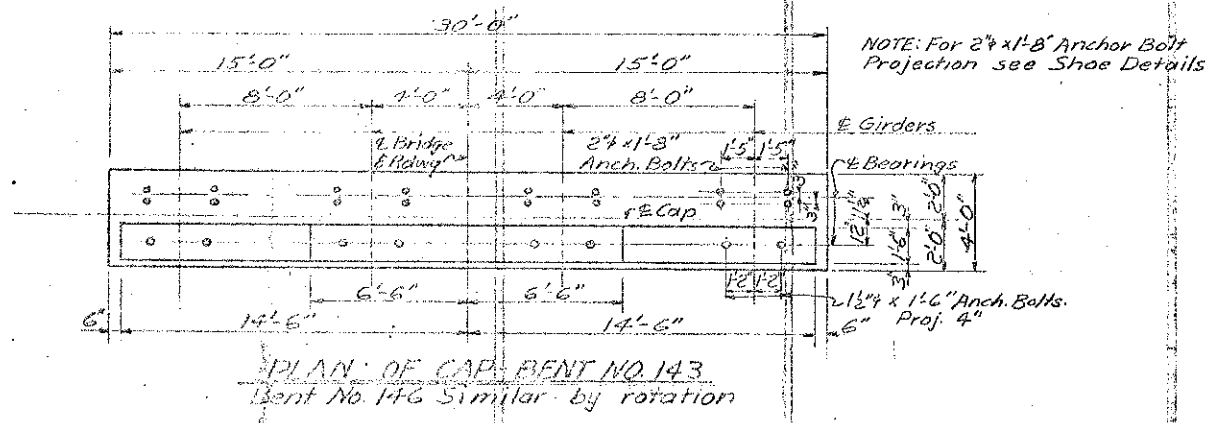 30'-0"
NOTE: For 2"ϕ x1'-8" Anchor Bolt
Projection see Shoe Details
15'-0" 15'-0"
8'-0" 4'-0" 4'-0" 8'-0"
℄ Girders
℄ Bridge
℄ Rdwy
2"ϕ x1'-8"
Anch. Bolts
1'-5" 1'-5"
℄ Bearings
℄ Cap
3"
3"
12" 12"
3" 1'-6" 3"
2'-0" 2'-0"
4'-0"
1'-2" 1'-2"
6'-6" 6'-6"
1½"ϕ x 1'-6" Anch. Bolts.
Proj. 4"
6" 14'-6" 14'-6" 6"
PLAN OF CAP BENT NO. 143
Bent No. 146 Similar by rotation